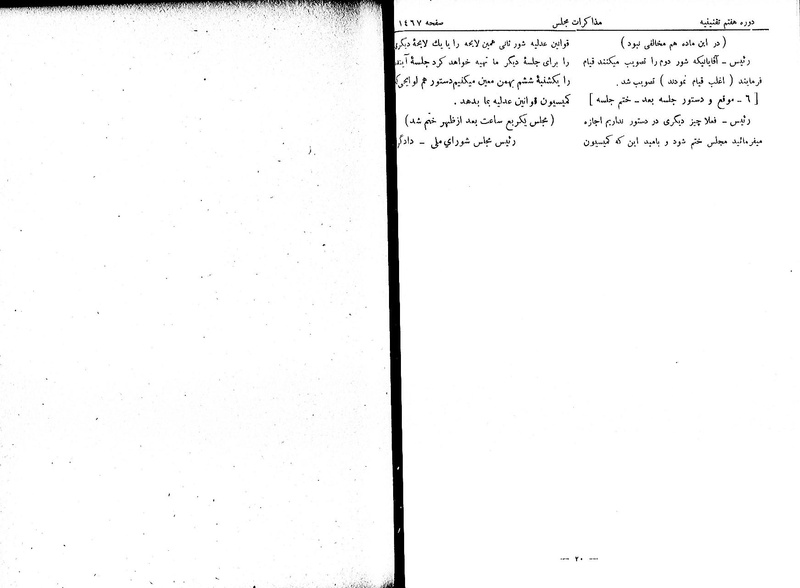 دوره هفتم تقنینیه مذاکرات مجلس صفحه ١٤٦٧
( در این ماده هم مخالفی نبود )
رئیس ـ آقایانیکه شور دوم را تصویب میکنند قیام
فرمایند ( اغلب قیام نمودند ) تصویب شد .
[ ٦ ـ موقع و دستور جلسه بعد ـ ختم جلسه ]
رئیس ـ فعلا چیز دیگری در دستور نداریم اجازه
میفرمائید مجلس ختم شود و بامید این که کمیسیون
قوانین عدلیه شور ثانی همین لایحه را با یك لایحهٔ دیگری
را برای جلسهٔ دیگر ما تهیه خواهد کرد جلسهٔ آینده
را یکشنبهٔ ششم بهمن معین میکنیم دستور هم لوایحی که
کمیسیون قوانین عدلیه بما بدهد .
( مجلس یکربع ساعت بعد از ظهر ختم شد )
رئیس مجلس شورای ملی ـ دادگر
— ٢٠ —